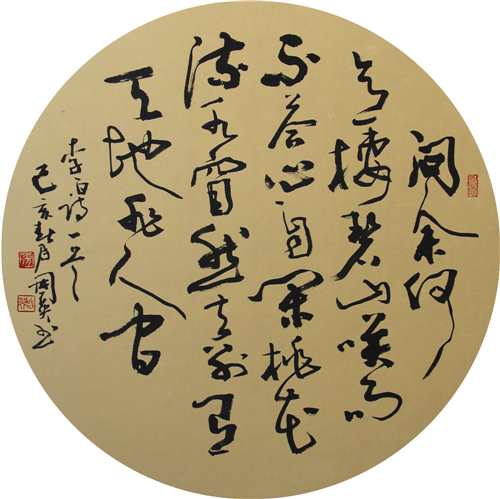 问余何
意棲碧山笑而
不答心自闲桃花
流水窅然去别有
天地非人间
李白诗一首
己亥 月国 书